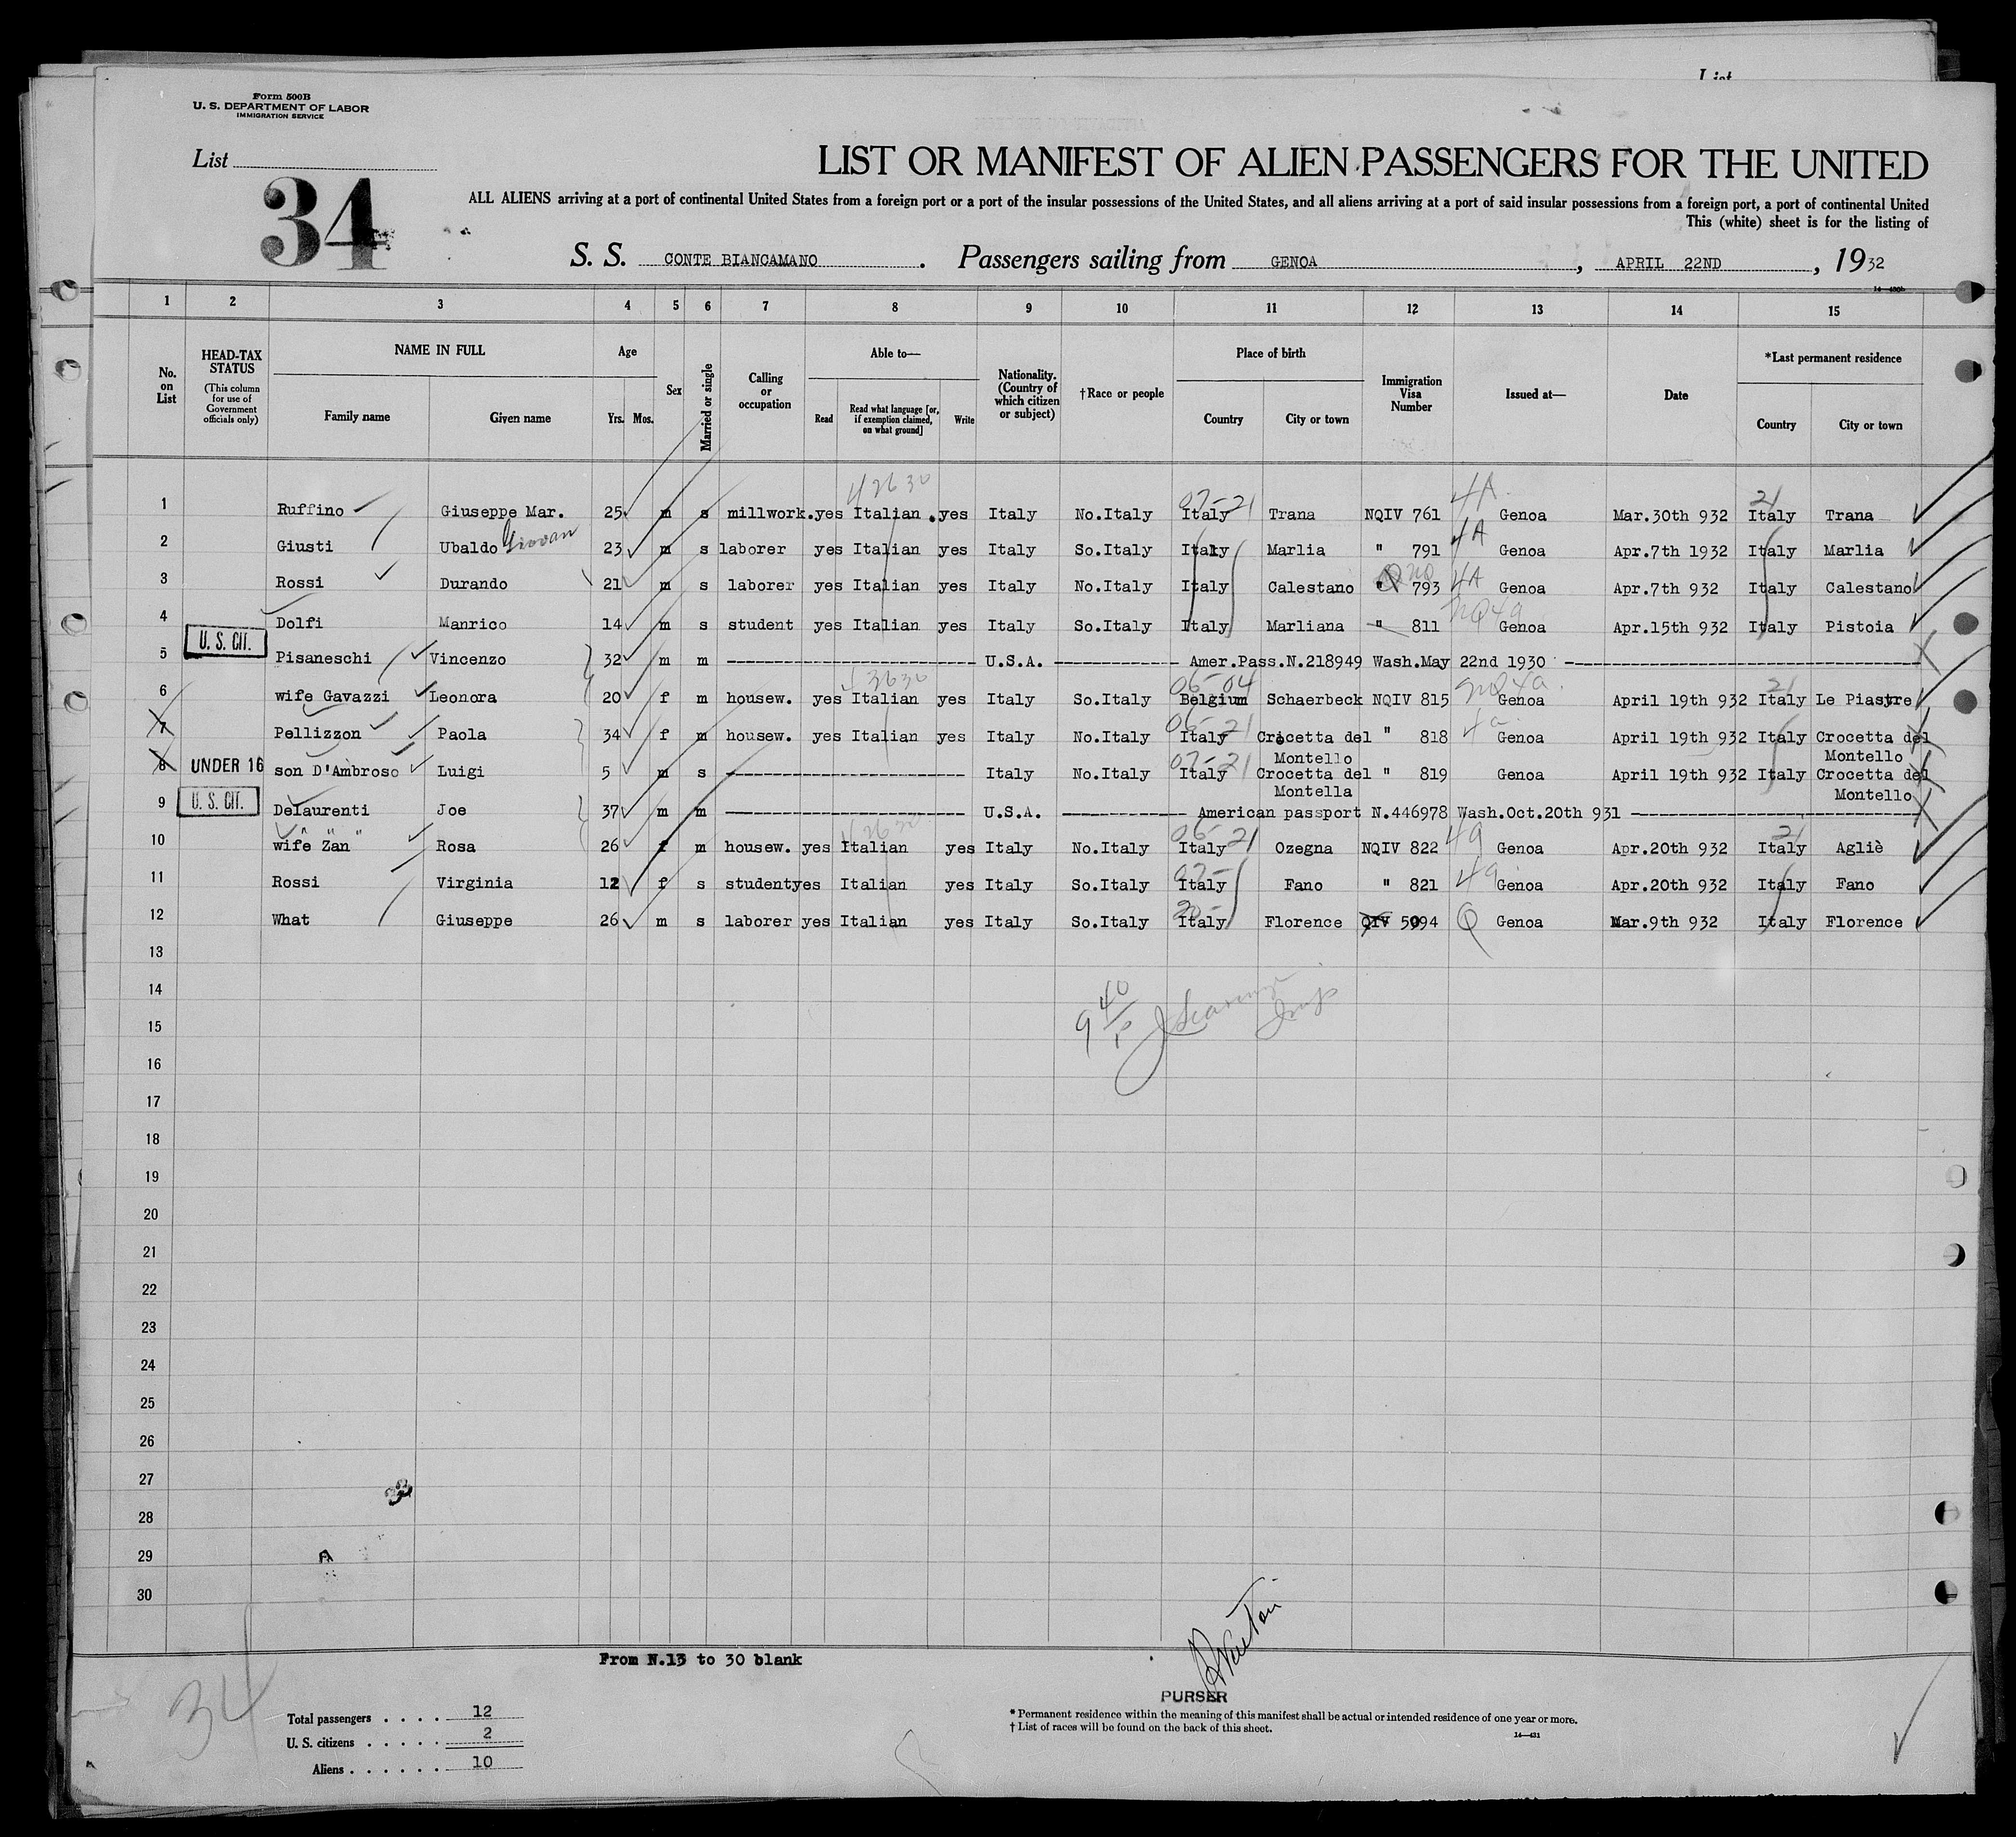 List
Form 500B
U. S. DEPARTMENT OF LABOR
IMMIGRATION SERVICE
List
34
LIST OR MANIFEST OF ALIEN PASSENGERS FOR THE UNITED
ALL ALIENS arriving at a port of continental United States from a foreign port or a port of the insular possessions of the United States, and all aliens arriving at a port of said insular possessions from a foreign port, a port of continental United
This (white) sheet is for the listing of
S. S. CONTE BIANCAMANO. Passengers sailing from GENOA, APRIL 22ND, 1932
1 2 3 4 5 6 7 8 9 10 11 12 13 14 15
No. on List
HEAD-TAX STATUS
(This column for use of Government officials only)
NAME IN FULL
Family name Given name
Age
Yrs. Mos.
Sex
Married or single
Calling or occupation
Able to—
Read
Read what language [or, if exemption claimed, on what ground]
Write
Nationality. (Country of which citizen or subject)
†Race or people
Place of birth
Country City or town
Immigration Visa Number
Issued at—
Date
*Last permanent residence
Country City or town
1 Ruffino Giuseppe Mar. 25 m s millwork. yes Italian. yes Italy No.Italy Italy Trana NQIV 761 4A Genoa Mar.30th 932 Italy Trana
2 Giusti Ubaldo Giovan 23 m s laborer yes Italian yes Italy So.Italy Italy Marlia " 791 4A Genoa Apr.7th 1932 Italy Marlia
3 Rossi Durando 21 m s laborer yes Italian yes Italy No.Italy Italy Calestano " 793 4A Genoa Apr.7th 932 Italy Calestano
4 Dolfi Manrico 14 m s student yes Italian yes Italy So.Italy Italy Marliana " 811 NQ4a Genoa Apr.15th 932 Italy Pistoia
U. S. CIT.
5 Pisaneschi Vincenzo 32 m m U.S.A. Amer.Pass.N.218949 Wash.May 22nd 1930
6 wife Gavazzi Leonora 20 f m housew. yes Italian yes Italy So.Italy 06-04 Belgium Schaerbeck NQIV 815 NQ4a Genoa April 19th 932 Italy Le Piastre
7 Pellizzon Paola 34 f m housew. yes Italian yes Italy No.Italy Italy 21 Crocetta del Montello " 818 4a Genoa April 19th 932 Italy Crocetta del Montello
8 UNDER 16 son D'Ambroso Luigi 5 m s Italy No.Italy Italy 21 Crocetta del Montella " 819 Genoa April 19th 932 Italy Crocetta del Montello
9 U. S. CIT. Delaurenti Joe 37 m m U.S.A. American passport N.446978 Wash.Oct.20th 931
10 wife Zan Rosa 26 f m housew. yes Italian yes Italy No.Italy Italy 21 Ozegna NQIV 822 4a Genoa Apr.20th 932 Italy Agliè
11 Rossi Virginia 12 f s student yes Italian yes Italy So.Italy Italy Fano " 821 4a Genoa Apr.20th 932 Italy Fano
12 What Giuseppe 26 m s laborer yes Italian yes Italy So.Italy Italy Florence QIV 5094 Q Genoa Mar.9th 932 Italy Florence
13
14
15
16
17
18
19
20
21
22
23
24
25
26
27
28
29
30
From N.13 to 30 blank
34
Total passengers . . . . 12
U. S. citizens . . . . . 2
Aliens . . . . . . 10
PURSER
* Permanent residence within the meaning of this manifest shall be actual or intended residence of one year or more.
† List of races will be found on the back of this sheet.
14—431